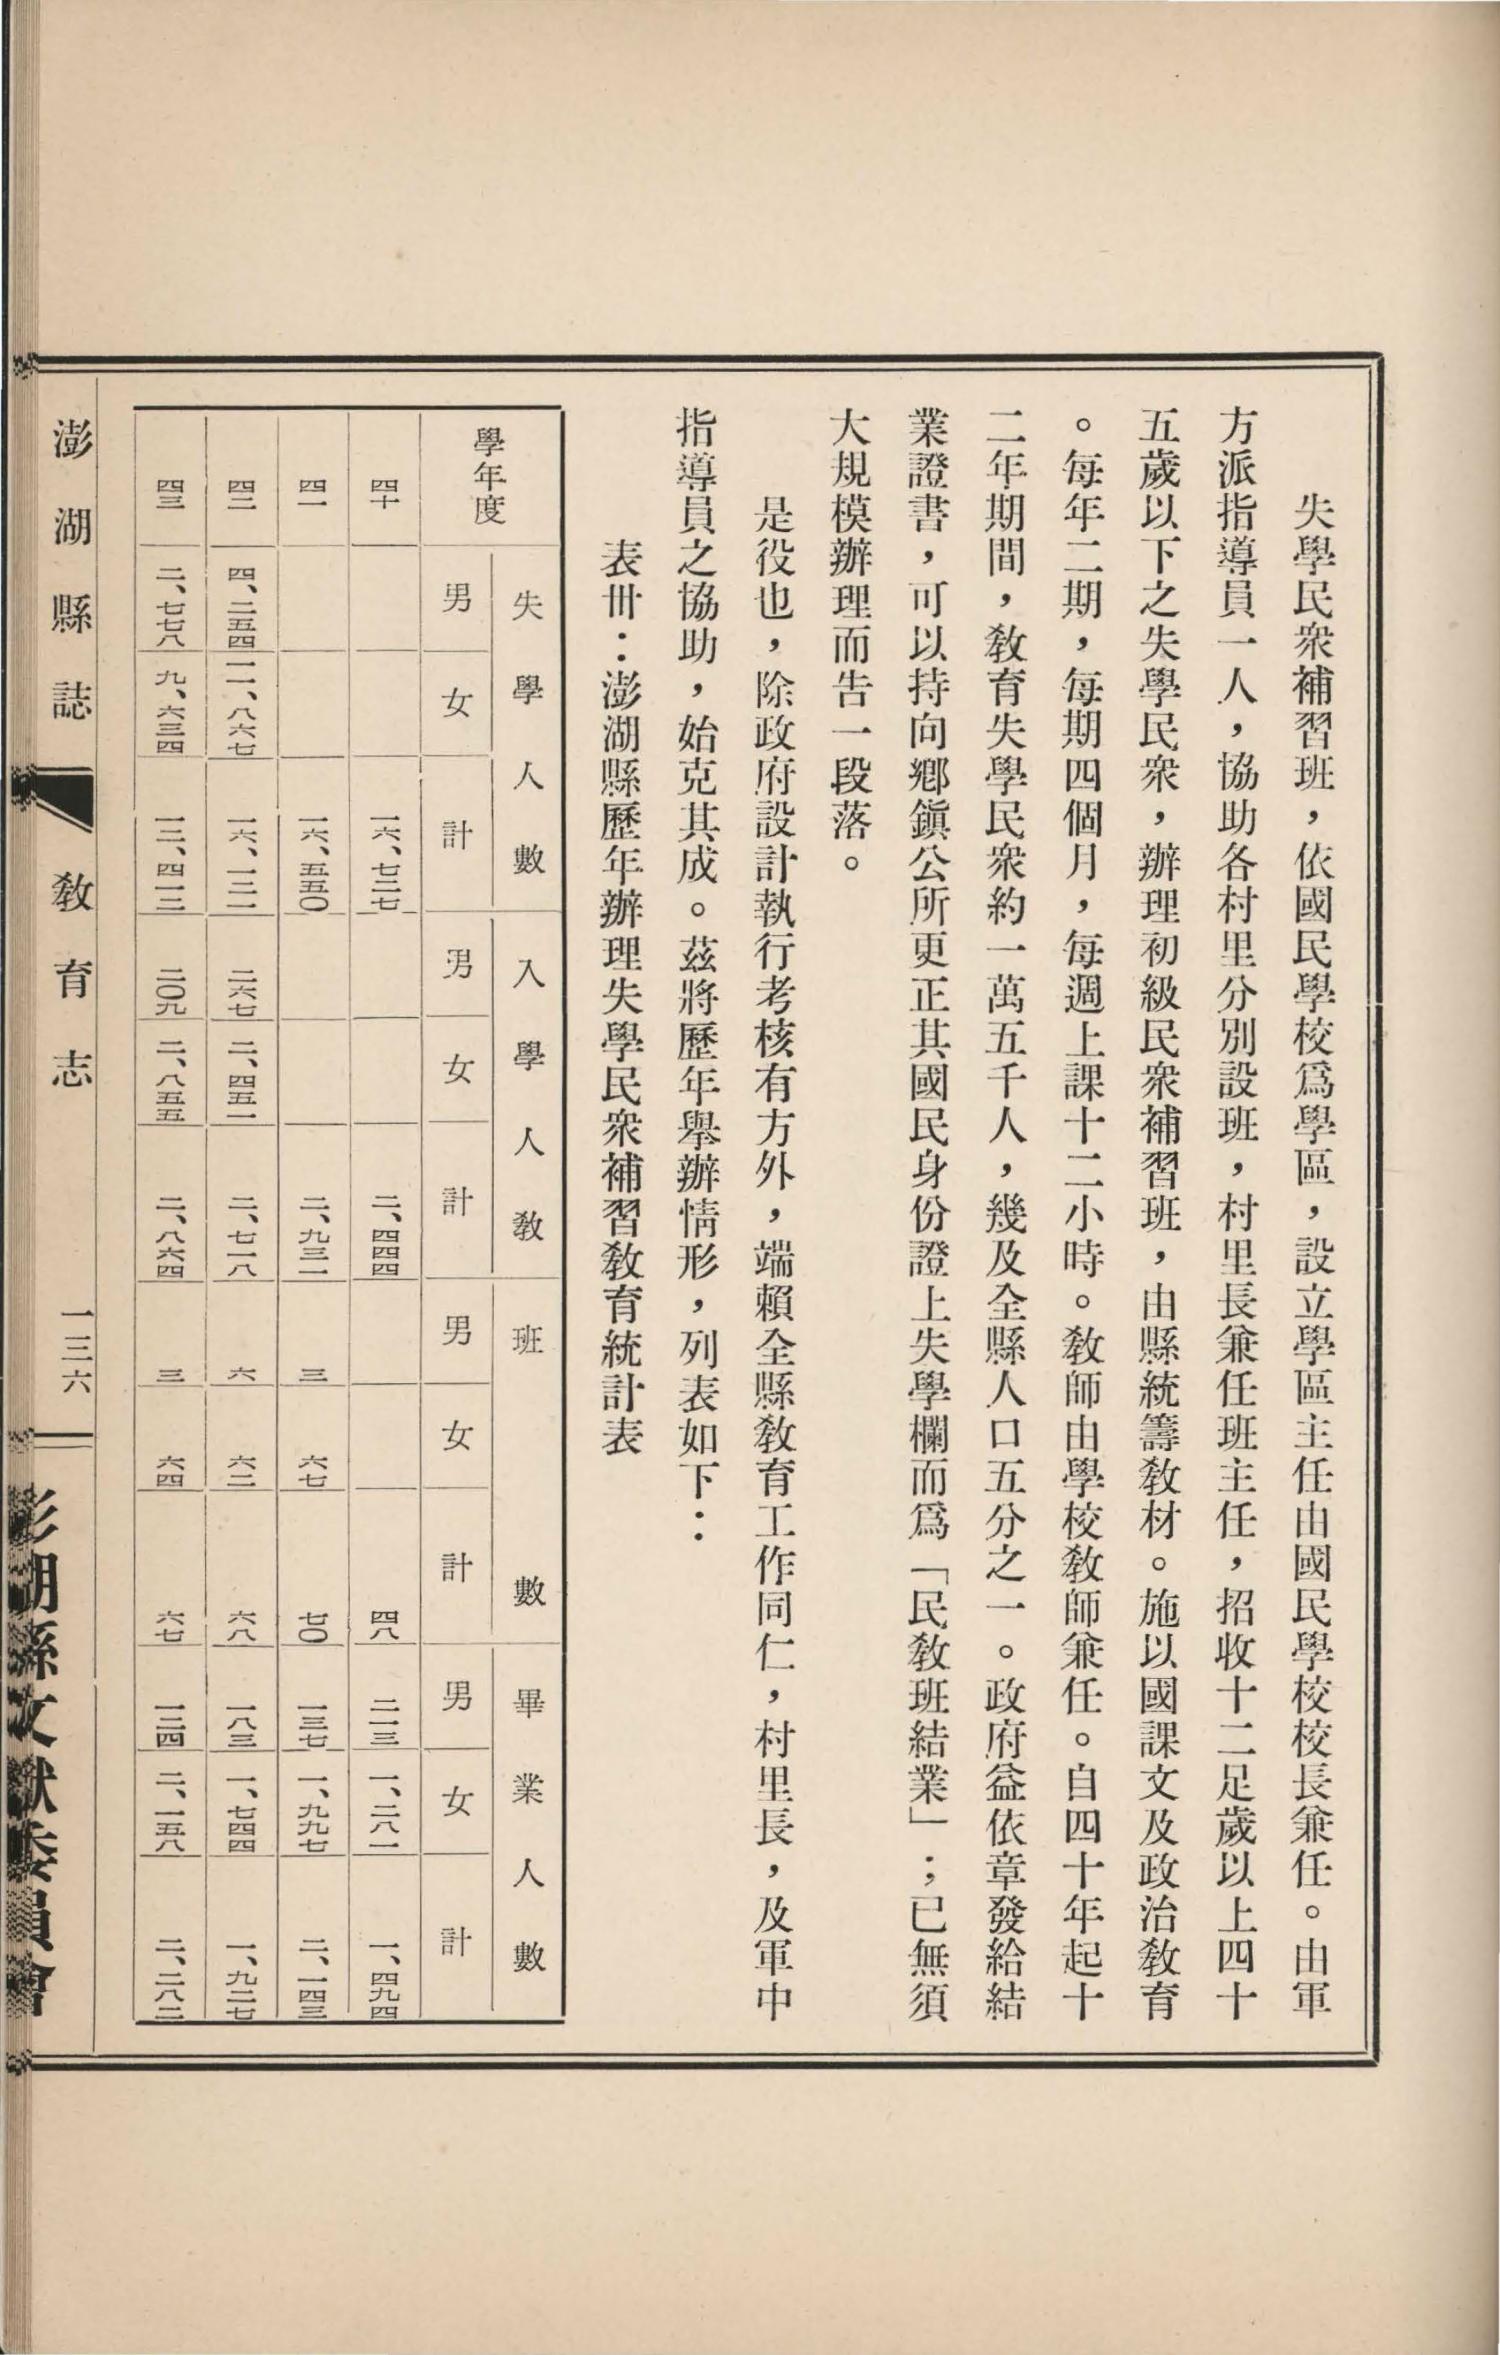 失學民衆補習班，依國民學校爲學區，設立學區主任由國民學校校長兼任。由軍
方派指導員一人，協助各村里分別設班，村里長兼任班主任，招收十二足歲以上四十
五歲以下之失學民衆，辦理初級民衆補習班，由縣統籌敎材。施以國課文及政治敎育
。每年二期，每期四個月，每週上課十二小時。敎師由學校敎師兼任。自四十年起十
二年期間，敎育失學民衆約一萬五千人，幾及全縣人口五分之一。政府益依章發給結
業證書，可以持向鄉鎭公所更正其國民身份證上失學欄而爲「民敎班結業」；已無須
大規模辦理而告一段落。
是役也，除政府設計執行考核有方外，端賴全縣敎育工作同仁，村里長，及軍中
指導員之協助，始克其成。茲將歷年舉辦情形，列表如下：
表卅：澎湖縣歷年辦理失學民衆補習敎育統計表
學年度 失學人數 入學人敎 班數 畢業人數
男 女 計 男 女 計 男 女 計 男 女 計
四十 一六、七二七 二、四四四 四八 二一三 一、二八一 一、四九四
四一 一六、五五〇 二、九三一 三 六七 七〇 一三七 一、九九七 二、一四三
四二 四、二五四 一一、八六七 一六、一二一 二六七 二、四五一 二、七一八 六 六二 六八 一八三 一、七四四 一、九二七
四三 二、七七八 九、六三四 一二、四一二 二〇九 二、八五五 二、八六四 三 六四 六七 一二四 二、一五八 二、二八二
澎湖縣誌 敎育志 一三六
澎湖縣文獻委員會